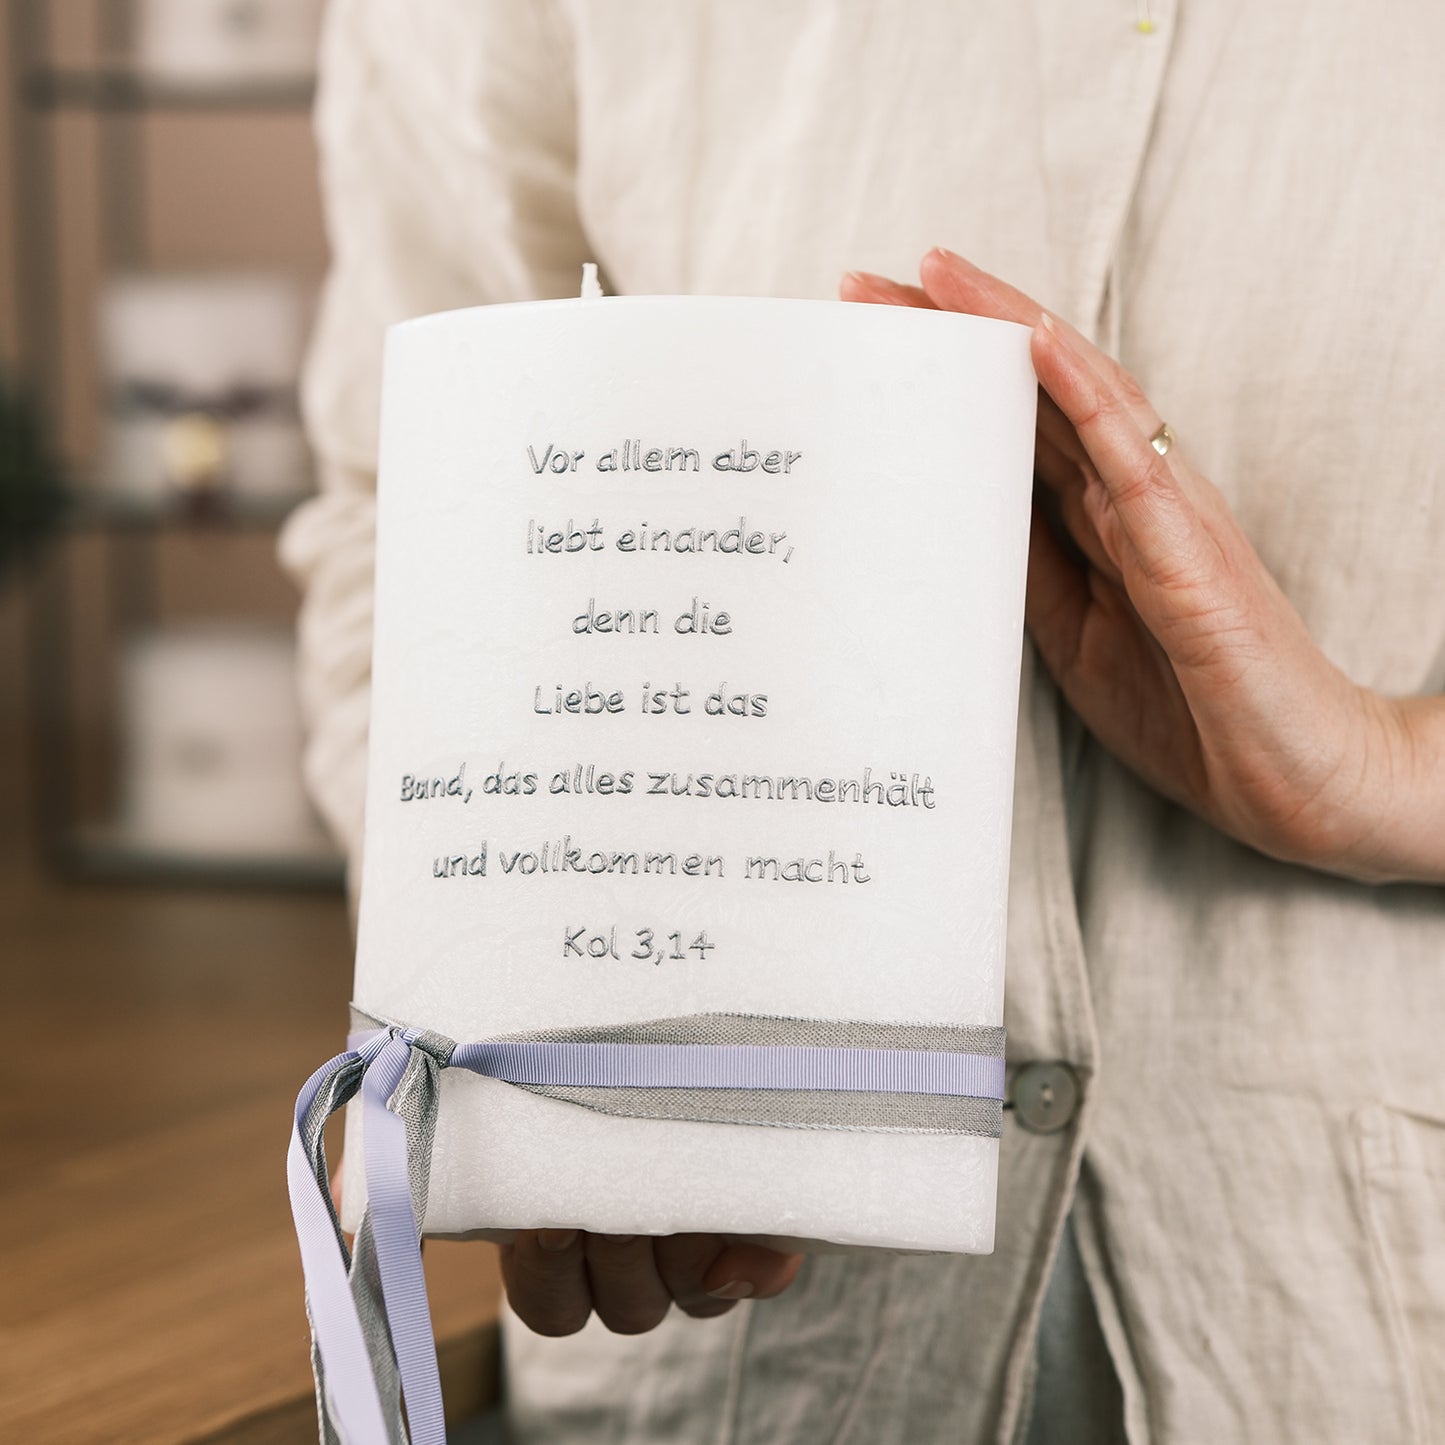 Vor allem aber
liebt einander,
denn die
Liebe ist das
Band, das alles zusammenhält
und vollkommen macht
Kol 3,14